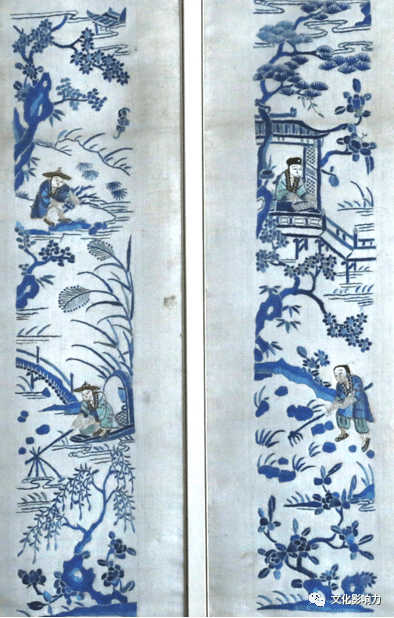 文化影响力